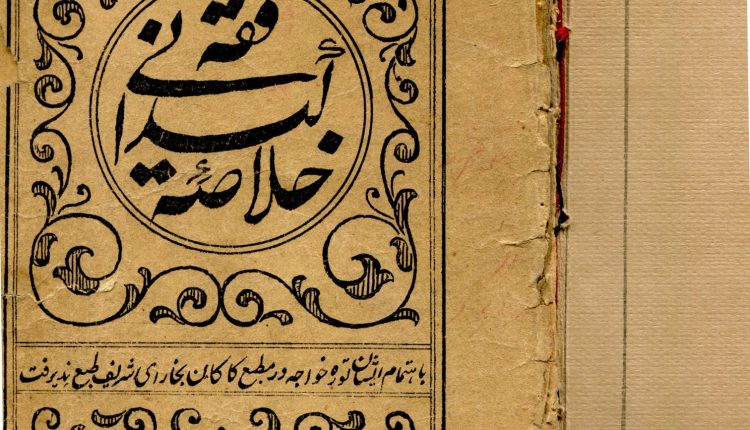 فقه
کیدانی
خلاصهٔ
باهتمام ایشان توره خواجه در مطبع کاکان بخارای شریف طبع پذیرفت